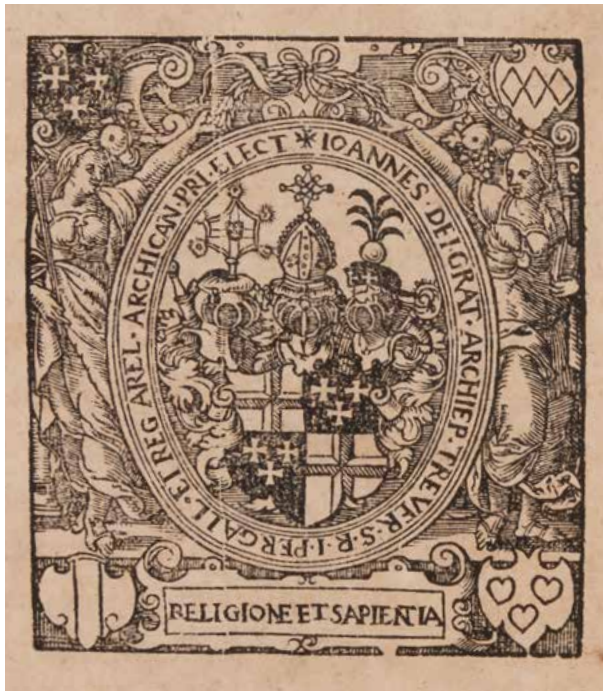 ✶ IOANNES · DEI GRAT · ARCHIEP · TREVER · S · R · I · PER GALL · ET REG AREL · ARCHICAN · PRI · ELECT
RELIGIONE ET SAPIENTIA